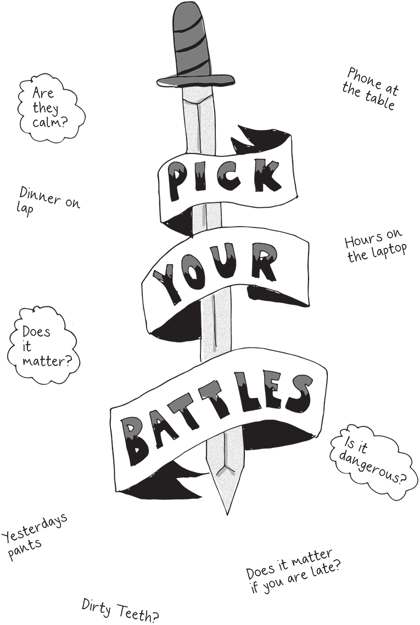 Are
they
calm?
Phone at
the table
PICK
Dinner on
lap
YOUR
Hours on
the laptop
Does
it
matter?
BATTLES
Is it
dangerous?
Yesterdays
pants
Does it matter
if you are late?
Dirty Teeth?